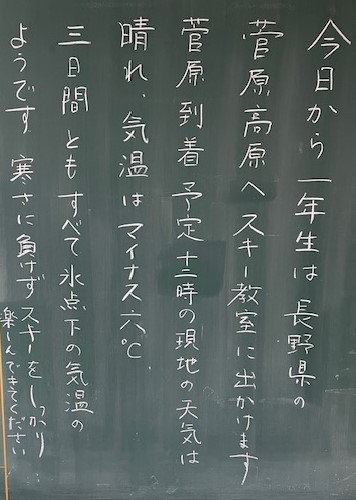 今日から一年生は長野県の
菅原高原へスキー教室に出かけます
菅原到着予定十二時の現地の天気は
晴れ、気温はマイナス六℃
三日間ともすべて氷点下の気温の
ようです 寒さに負けずスキーをしっかり
楽しんできてください